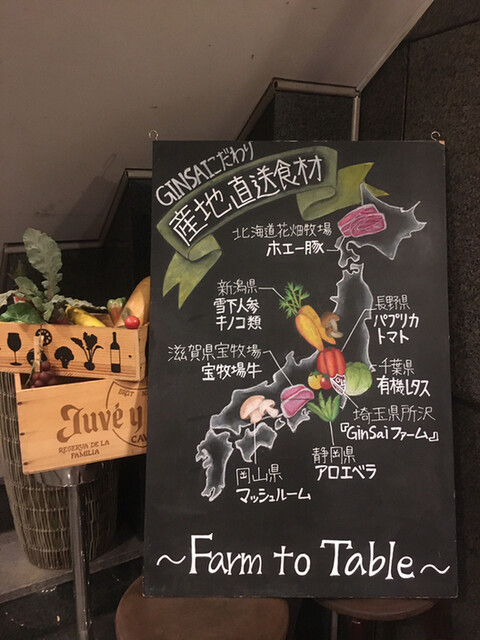 GINSAIこだわり
産地直送食材
北海道花畑牧場
ホエー豚
新潟県
雪下人参
キノコ類
長野県
パプリカ
トマト
滋賀県宝牧場
宝牧場牛
千葉県
有機レタス
埼玉県所沢
『GinSaiファーム』
静岡県
アロエベラ
岡山県
マッシュルーム
~Farm to Table~
Juvé y
RESERVA DE LA
FAMILIA
CAV